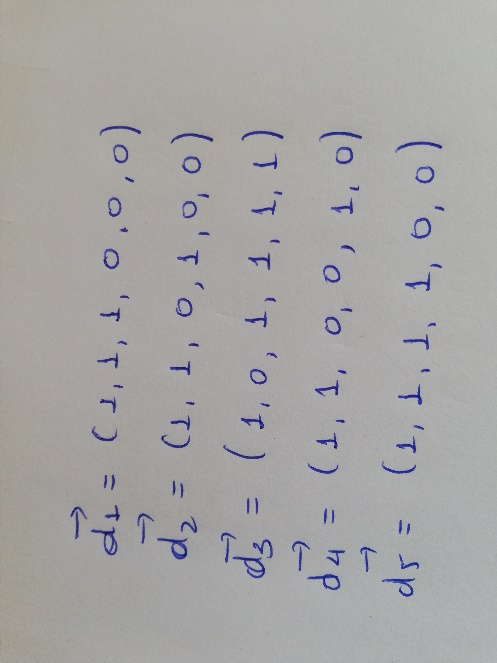 d⃗1 = (1, 1, 1, 0, 0, 0)
d⃗2 = (1, 1, 0, 1, 0, 0)
d⃗3 = (1, 0, 1, 1, 1, 1)
d⃗4 = (1, 1, 0, 0, 1, 0)
d⃗5 = (1, 1, 1, 1, 0, 0)